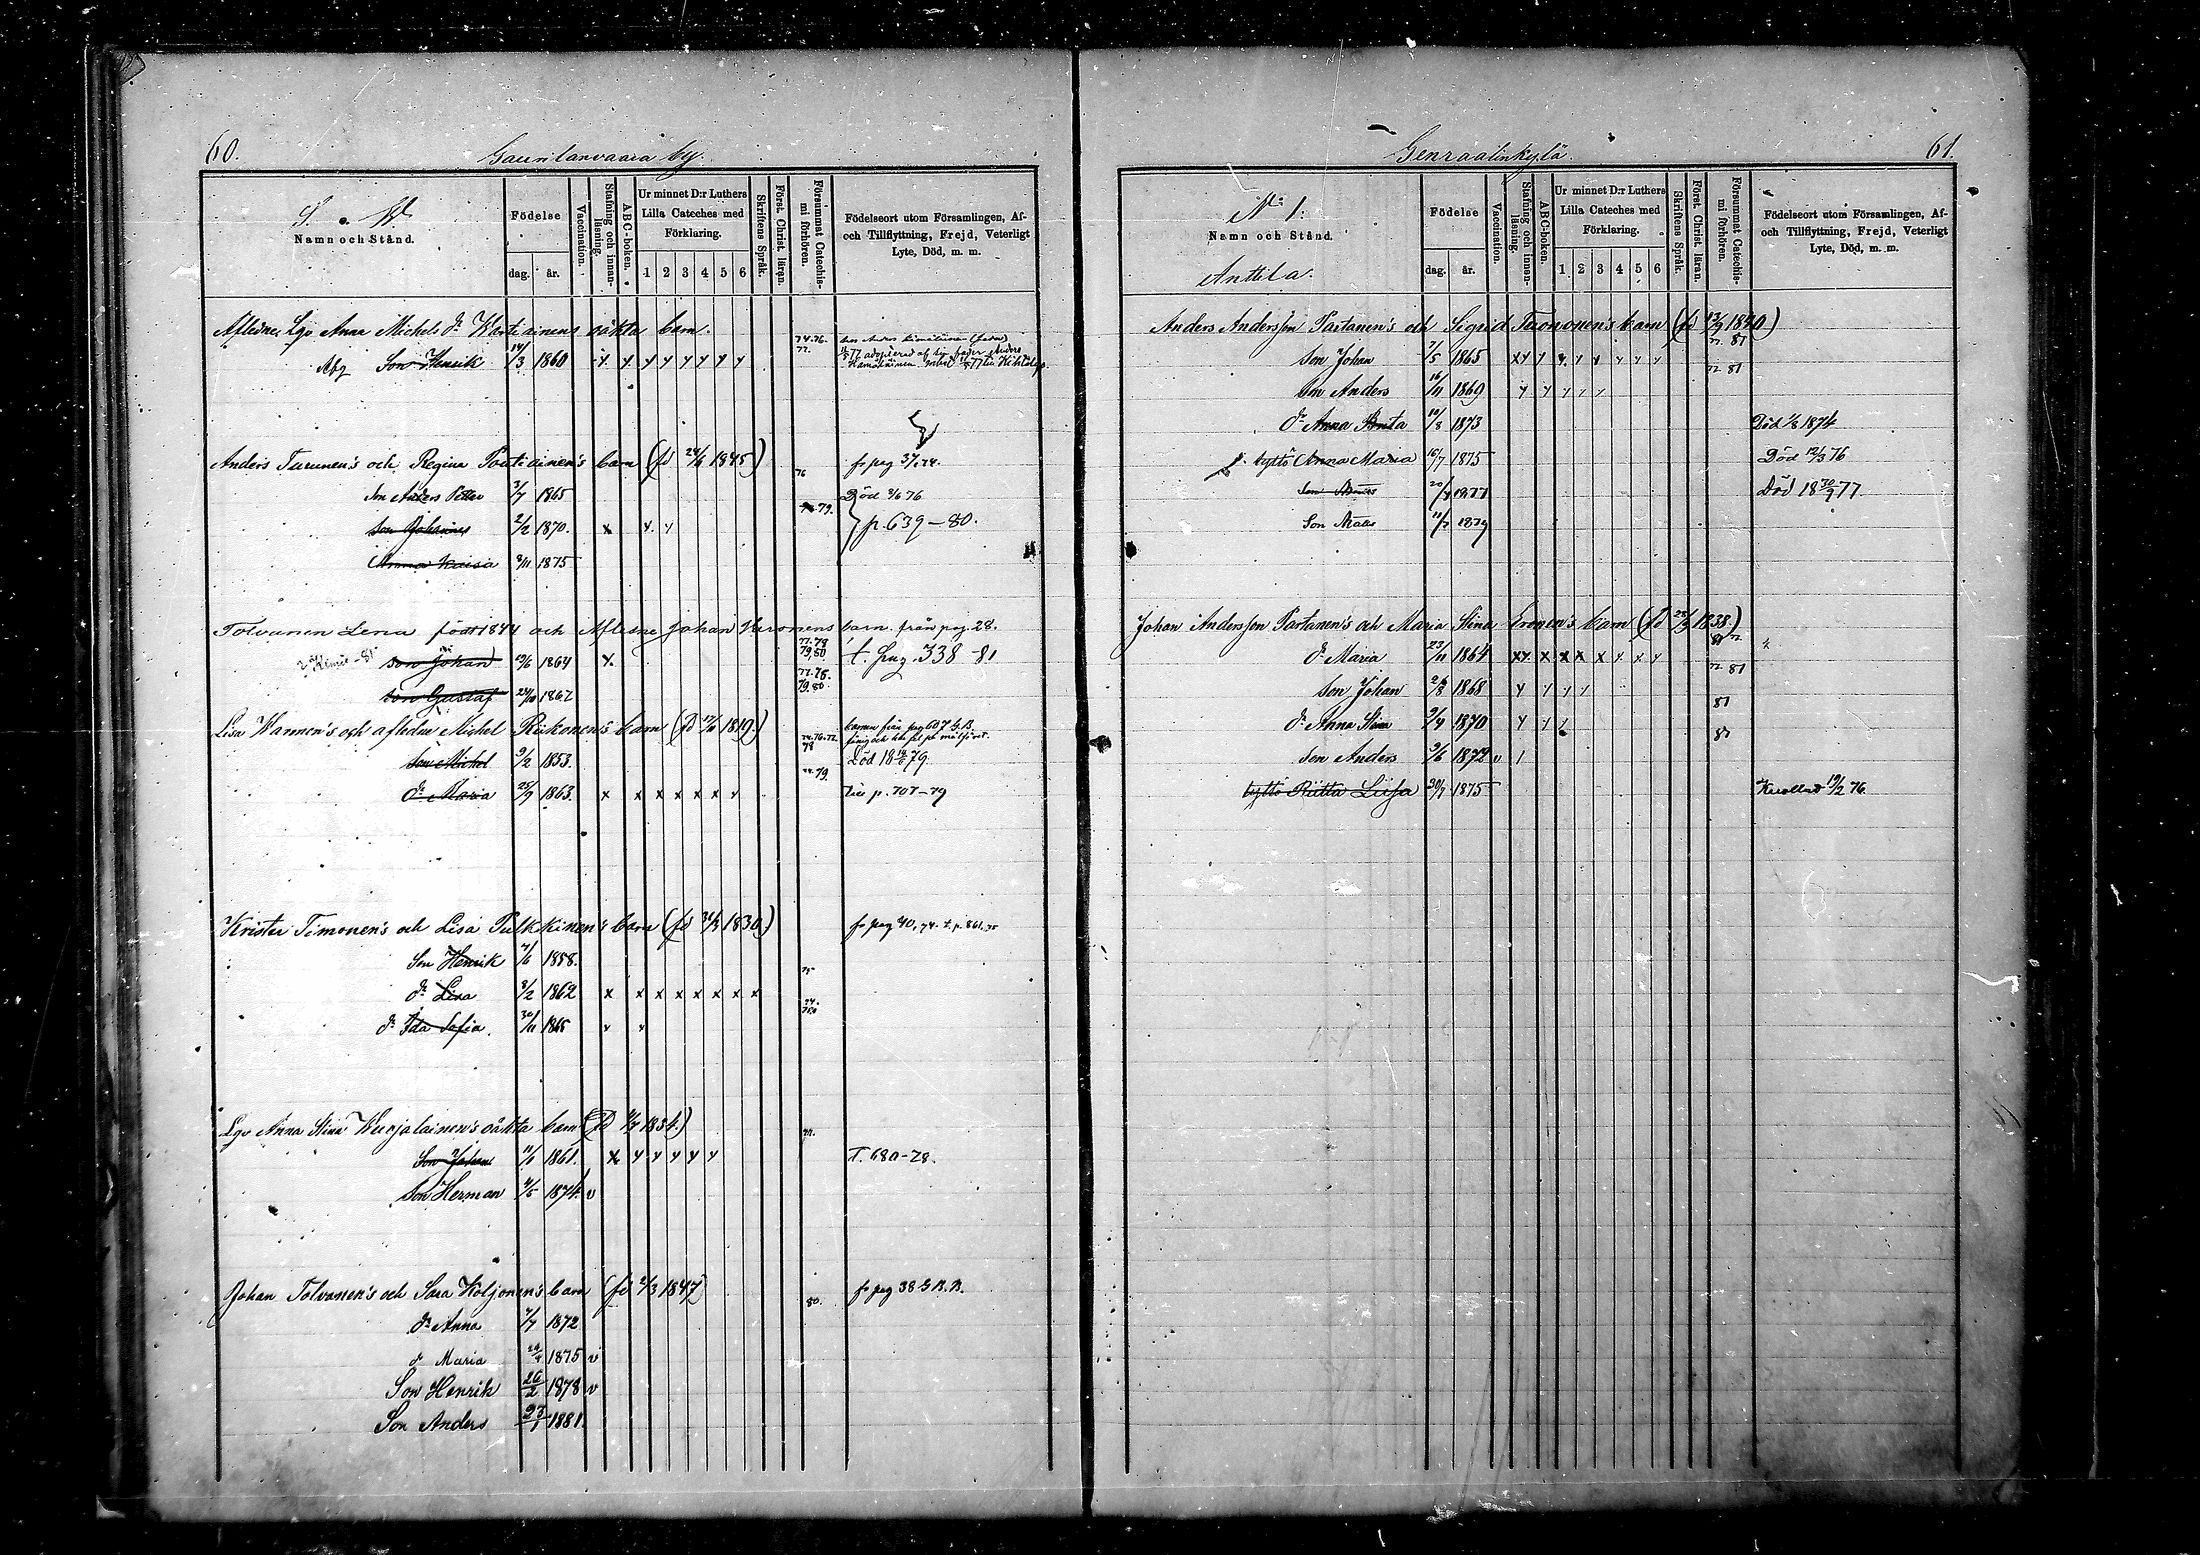 60.
Gauritanvaara by.
S. W.
Namn och Stånd.
Födelse
dag. år.
Vaccination.
Stafning och innanläsning.
ABC-boken.
Ur minnet D:r Luthers
Lilla Cateches med
Förklaring.
1 2 3 4 5 6
Skriftens Språk.
Först. Christ. läran.
Försummat Catechismi förhören.
Födelseort utom Församlingen, Af-
och Tillflyttning, Frejd, Veterligt
Lyte, Död, m. m.
Aflidne Lgo Anna Michels dr oäkta barn.
Afg Son Henrik 14/3 1860
74.76.
77.
Anders Turunen's och Regina Pontiainen's barn (fd 24/6 1845) fr pag 37, 74.
76
Son Anders Petter 3/7 1865 Död 76
Son Johannes 2/2 1870. 79. p. 639-80.
Anna Kaisa 8/11 1875
Tolvanen Lena född 1844 och Aflidne Johan Hironens barn från pag 28.
77.78
79,80
son Johan 29/6 1864 t. pag. 338-81
son Gustaf 1867
79.80
Lisa och aflidne Michel Riikonen's barn (fd 17/6 1819.)
Son Michel 9/2 1853. Död 79
dr Maria 25/9 1863. 79. p. 707-79
Krister Timonen's och Lisa Pulkkinen's barn (fd 1830) fr pag 40, 74. t. p. 861.
Son Henrik 7/6 1858.
75
dr Lisa 8/2 1862
dr Ida Sofia. 30/11 1865
Lgo Anna Stina Kurjalainen's oäkta barn (fd 1834.)
Son Johan 11/6 1861. T. 680-78.
Son Herman 4/5 1874. v
Johan Tolvanen's och Sara Koljonen's barn (fd 2/3 1847) fr pag 38 G.B.B.
80.
dr Anna 7/7 1872
dr Maria 1875 v
Son Henrik 26/2 1878 v
Son Anders 27/1 1881.
Genraalinkylä.
61.
No 1.
Namn och Stånd.
Anttila.
Födelse
dag. år.
Vaccination.
Stafning och innanläsning.
ABC-boken.
Ur minnet D:r Luthers
Lilla Cateches med
Förklaring.
1 2 3 4 5 6
Skriftens Språk.
Först. Christ. läran.
Försummat Catechismi förhören.
Födelseort utom Församlingen, Af-
och Tillflyttning, Frejd, Veterligt
Lyte, Död, m. m.
Anders Andersson Partanen's och Sigrid Turonen's barn (fd 13/9 1840)
77. 81
Son Johan 7/5 1865
72 81
Son Anders 16/11 1869
dr Anna 10/8 1873 Död 1874
tyttö Anna Maria 16/7 1875 Död 12/3 76
Son 20/4 1877 Död 18 30/9 77.
Son Mats 11/7 1879
Johan Andersson Partanen's och Maria Stina Eronen's barn (fd 1838.)
81
dr Maria 23/11 1864
72 81
Son Johan 26/8 1868
81
dr Anna Stina 9/4 1870
81
Son Anders 9/6 1872 v
tyttö Riitta Liisa 30/7 1875 Kuollut 19/2 76